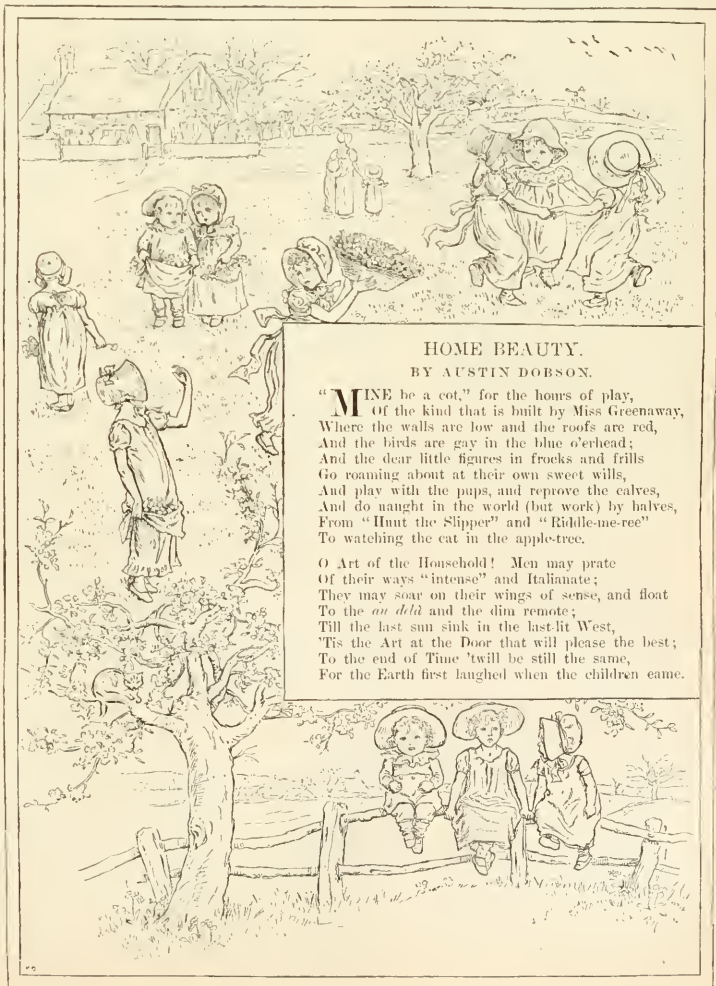 HOME BEAUTY.
BY AUSTIN DOBSON.
"MINE be a cot," for the hours of play,
Of the kind that is built by Miss Greenaway,
Where the walls are low and the roofs are red,
And the birds are gay in the blue o'erhead;
And the dear little figures in frocks and frills
Go roaming about at their own sweet wills,
And play with the pups, and reprove the calves,
And do naught in the world (but work) by halves,
From "Hunt the Slipper" and "Riddle-me-ree"
To watching the cat in the apple-tree.
O Art of the Household! Men may prate
Of their ways "intense" and Italianate;
They may soar on their wings of sense, and float
To the au delà and the dim remote;
Till the last sun sink in the last-lit West,
'Tis the Art at the Door that will please the best;
To the end of Time 'twill be still the same,
For the Earth first laughed when the children came.